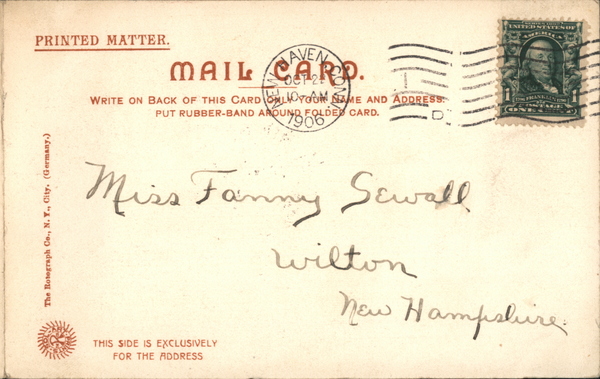 PRINTED MATTER.
MAIL CARD.
WRITE ON BACK OF THIS CARD ONLY YOUR NAME AND ADDRESS.
PUT RUBBER-BAND AROUND FOLDED CARD.
NEW HAVEN, CONN.
OCT 2
AM
1906
D
UNITED STATES OF
AMERICA
1
FRANKLIN
POSTAGE
ONE CENT
Miss Fanny Sewall
Wilton
New Hampshire.
The Rotograph Co., N. Y., City. (Germany.)
THIS SIDE IS EXCLUSIVELY
FOR THE ADDRESS